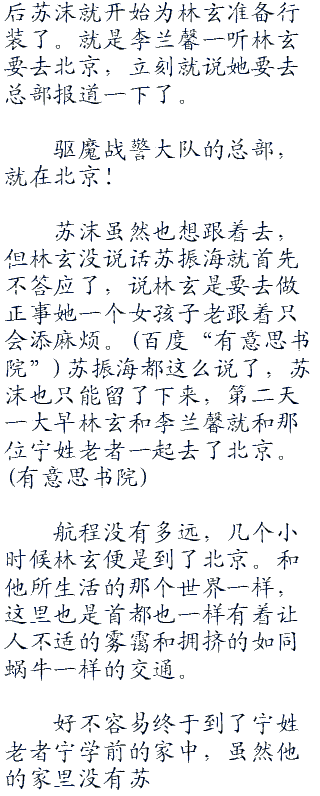 后苏沫就开始为林玄准备行
装了。就是李兰馨一听林玄
要去北京，立刻就说她要去
总部报道一下了。
驱魔战警大队的总部，
就在北京！
苏沫虽然也想跟着去，
但林玄没说话苏振海就首先
不答应了，说林玄是要去做
正事她一个女孩子老跟着只
会添麻烦。(百度“有意思书
院”)苏振海都这么说了，苏
沫也只能留了下来，第二天
一大早林玄和李兰馨就和那
位宁姓老者一起去了北京。
(有意思书院)
航程没有多远，几个小
时候林玄便是到了北京。和
他所生活的那个世界一样，
这里也是首都也一样有着让
人不适的雾霭和拥挤的如同
蜗牛一样的交通。
好不容易终于到了宁姓
老者宁学前的家中，虽然他
的家里没有苏